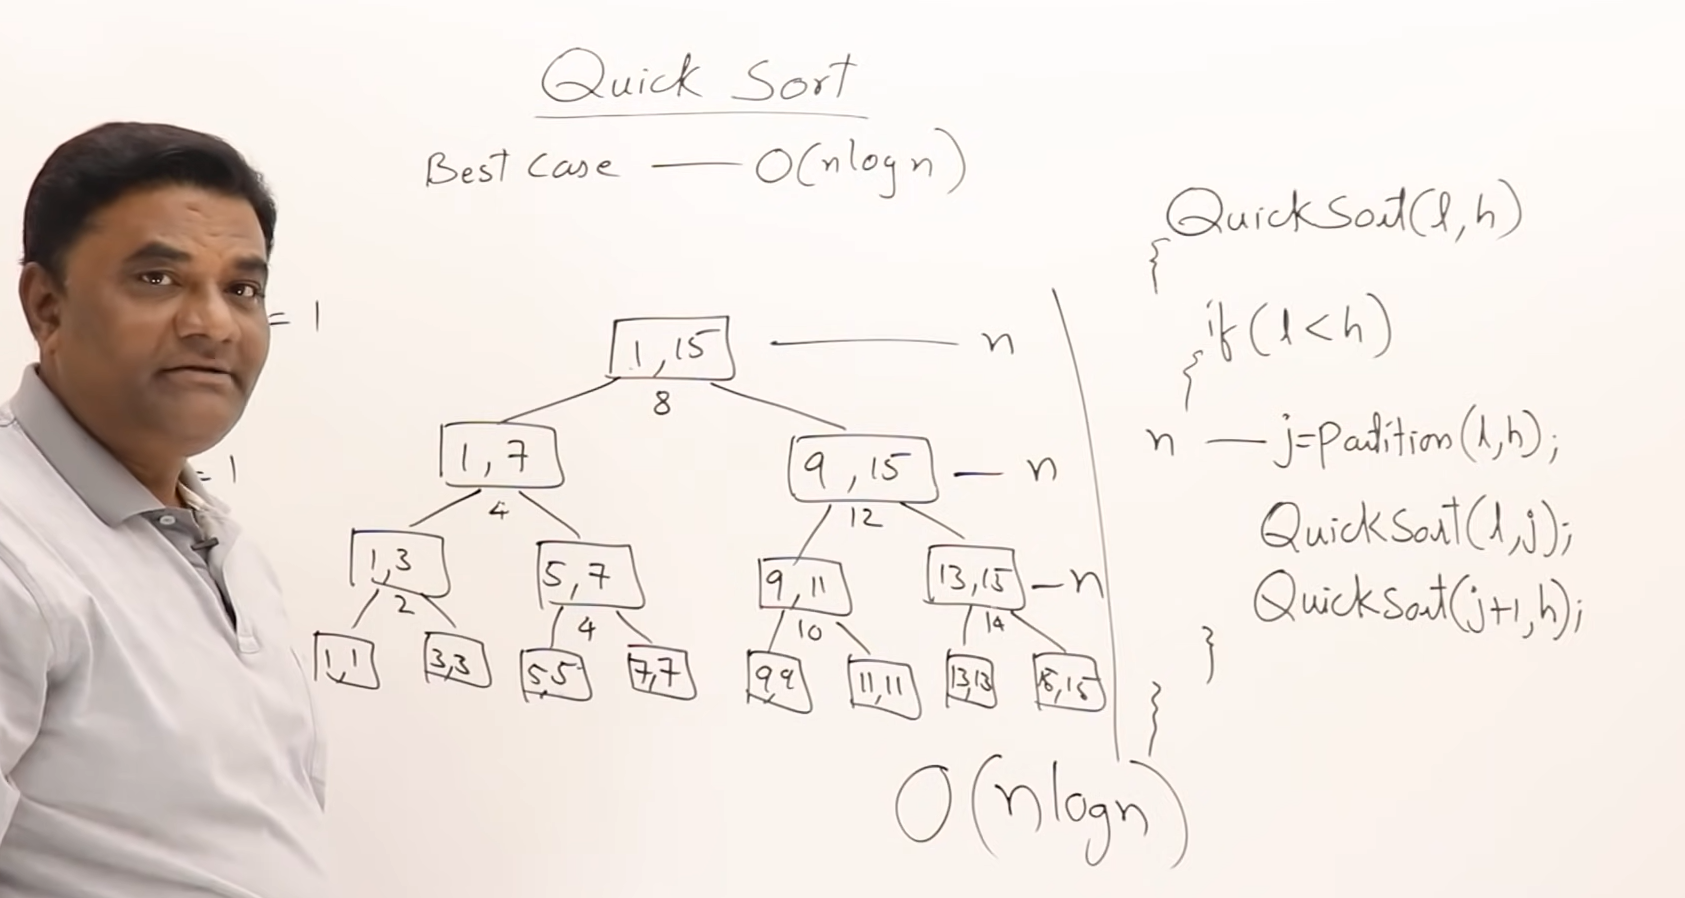 Quick Sort
Best Case — O(nlogn)
= 1
= 1
1,15 — n
8
1,7
9,15 — n
4
12
1,3
5,7
9,11
13,15 — n
2
4
10
14
1,1
3,3
5,5
7,7
9,9
11,11
13,13
15,15
QuickSort(l,h)
{
if(l<h)
{
n — j=partition(l,h);
QuickSort(l,j);
QuickSort(j+1,h);
}
}
O(nlogn)